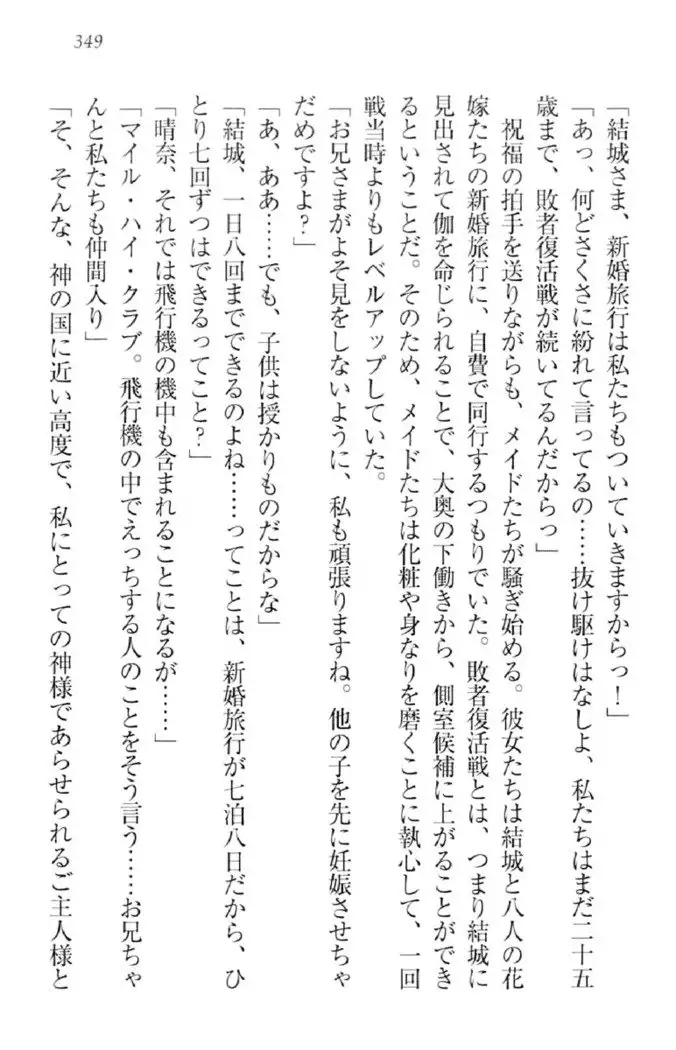 349
「結城さま、新婚旅行は私たちもついていきますからっ！」
「あっ、何どさくさに紛れて言ってるの……抜け駆けはなしよ、私たちはまだ二十五
歳まで、敗者復活戦が続いてるんだからっ」
祝福の拍手を送りながらも、メイドたちが騒ぎ始める。彼女たちは結城と八人の花
嫁たちの新婚旅行に、自費で同行するつもりでいた。敗者復活戦とは、つまり結城に
見出されて伽を命じられることで、大奥の下働きから、側室候補に上がることができ
るということだ。そのため、メイドたちは化粧や身なりを磨くことに執心して、一回
戦当時よりもレベルアップしていた。
「お兄さまがよそ見をしないように、私も頑張りますね。他の子を先に妊娠させちゃ
だめですよ？」
「あ、ああ……でも、子供は授かりものだからな」
「結城、一日八回までできるのよね……ってことは、新婚旅行が七泊八日だから、ひ
とり七回ずつはできるってこと？」
「晴奈、それでは飛行機の機中も含まれることになるが……」
「マイル・ハイ・クラブ。飛行機の中でえっちする人のことをそう言う……お兄ちゃ
んと私たちも仲間入り」
「そ、そんな、神の国に近い高度で、私にとっての神様であらせられるご主人様と